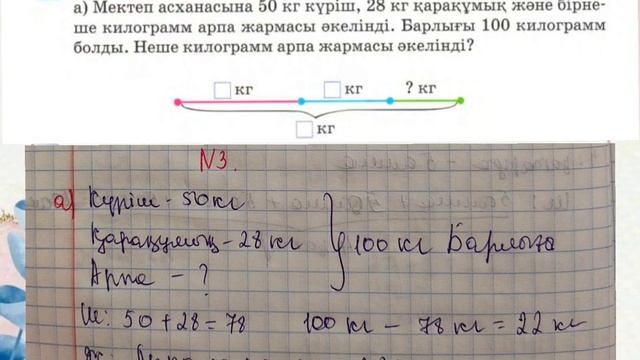 а) Мектеп асханасына 50 кг күріш, 28 кг қарақұмық және бірне-
ше килограмм арпа жармасы әкелінді. Барлығы 100 килограмм
болды. Неше килограмм арпа жармасы әкелінді?
кг кг ? кг
кг
N3.
а) Күріш - 50 кг
Қарақұмық - 28 кг 100 кг Барлығы
Арпа - ?
Ш: 50 + 28 = 78 100 кг - 78 кг = 22 кг